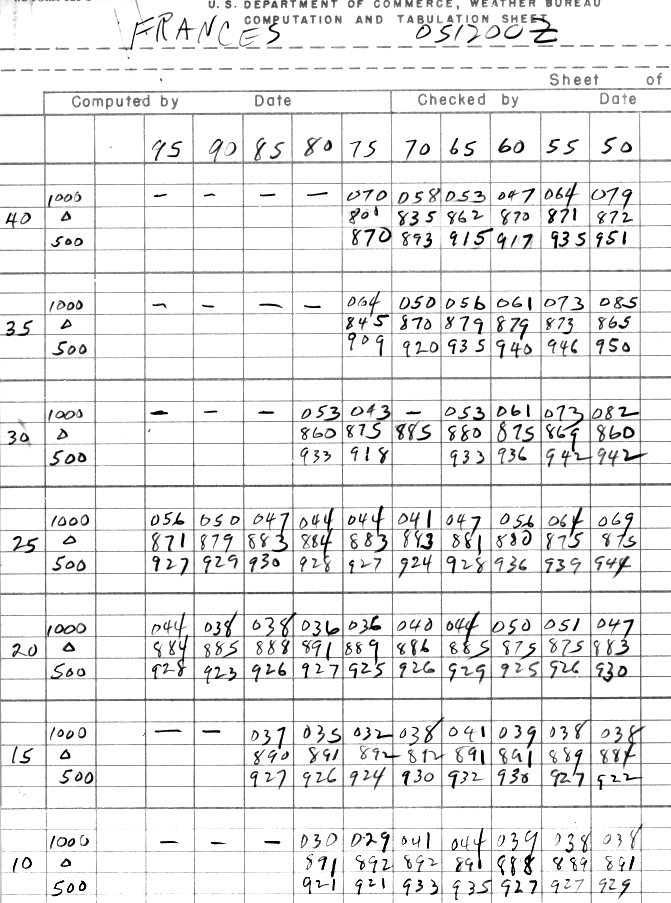 U.S. DEPARTMENT OF COMMERCE, WEATHER BUREAU
COMPUTATION AND TABULATION SHEET
FRANCES 051200Z
Sheet of
Computed by Date Checked by Date
95 90 85 80 75 70 65 60 55 50
1000 – – – – 070 058 053 047 064 079
40 Δ 801 835 862 870 871 872
500 870 893 915 917 935 951
1000 – – – – 064 050 056 061 073 085
35 Δ 845 870 879 879 873 865
500 909 920 935 940 946 950
1000 – – – 053 043 – 053 061 073 082
30 Δ 860 875 885 880 875 869 860
500 933 918 933 936 942 942
1000 056 050 047 044 044 041 047 056 064 069
25 Δ 871 879 883 884 883 883 881 880 875 875
500 927 929 930 928 927 924 928 936 939 944
1000 044 038 038 036 036 040 044 050 051 047
20 Δ 884 885 888 891 889 886 885 875 875 883
500 928 923 926 927 925 926 929 925 926 930
1000 – – 037 035 032 038 041 039 038 038
15 Δ 890 891 892 892 891 891 889 884
500 927 926 924 930 932 930 927 922
1000 – – – 030 029 041 044 039 038 038
10 Δ 891 892 892 891 888 889 891
500 921 921 933 935 927 927 929